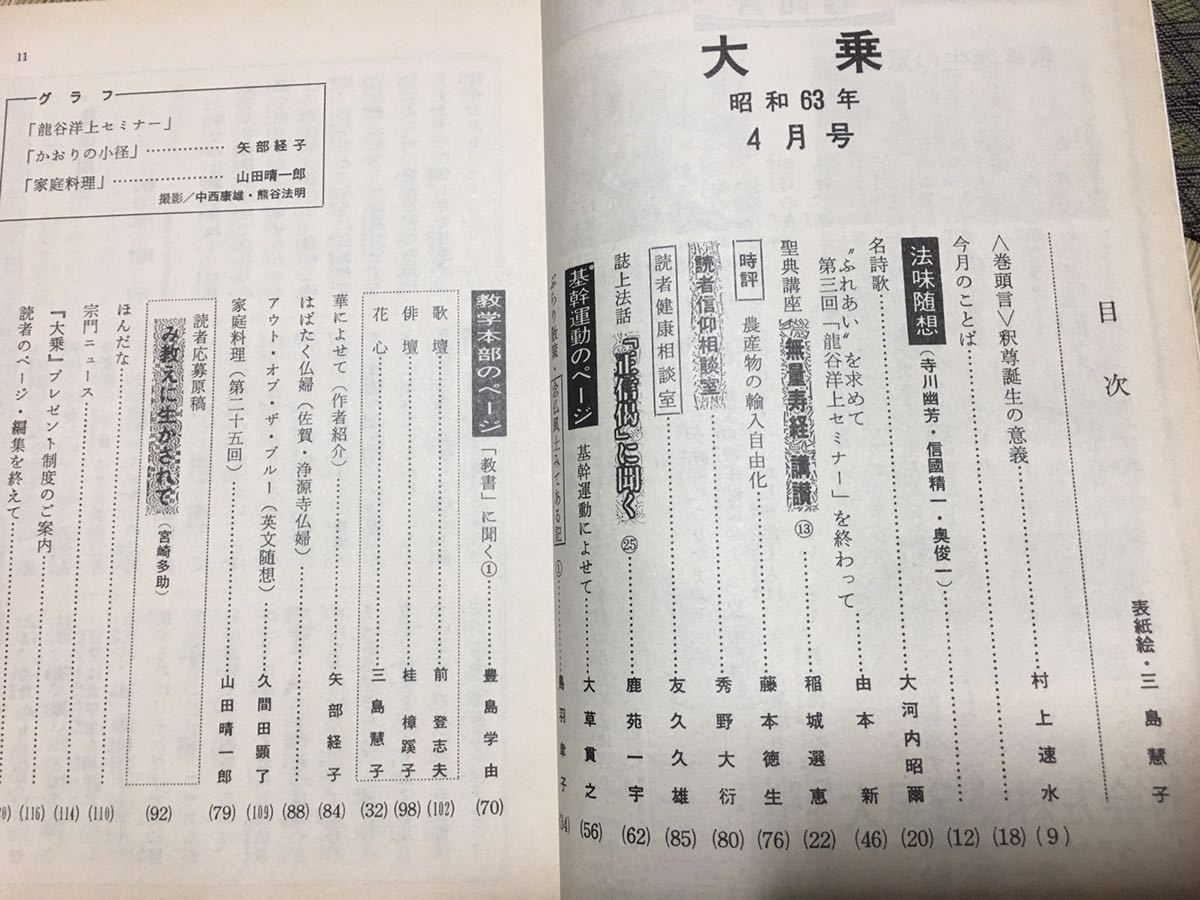 大乗
昭和63年
4月号
目次
表紙絵・三島慧子
〈巻頭言〉釈尊誕生の意義……村上速水(9)
今月のことば……(18)
法味随想(寺川幽芳・信國精一・奥俊一)……(12)
名詩歌……大河内昭爾(20)
"ふれあい"を求めて
第三回「龍谷洋上セミナー」を終わって……由本新(46)
聖典講座『無量寿経』講讃⑬……稲城選恵(22)
時評 農産物の輸入自由化……藤本徳生(76)
読者信仰相談室……秀野大衍(80)
読者健康相談室……友久久雄(85)
誌上法話『正信偈』に聞く㉕……鹿苑一宇(62)
基幹運動のページ 基幹運動によせて……大草貫之(56)
ぶらり散策・念仏風土みてある記①……鳥羽 子(34)
11
グラフ
「龍谷洋上セミナー」
「かおりの小径」……矢部経子
「家庭料理」……山田晴一郎
撮影/中西康雄・熊谷法明
教学本部のページ 「教書」に聞く①……豊島学由(70)
歌壇……前登志夫(102)
俳壇……桂樟蹊子(98)
花心……三島慧子(32)
華によせて(作者紹介)……矢部経子(84)
はばたく仏婦(佐賀・浄源寺仏婦)……(88)
アウト・オブ・ザ・ブルー(英文随想)……久間田顕了(109)
家庭料理(第二十五回)……山田晴一郎(79)
読者応募原稿
み教えに生かされて(宮崎多助)(92)
ほんだな……(110)
宗門ニュース……(114)
『大乗』プレゼント制度のご案内……(116)
読者のページ・編集を終えて……